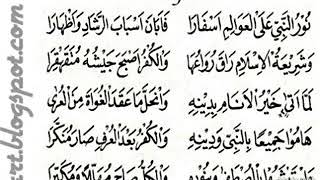 نُوْرُ النَّبِيِّ عَلَى الْعَوَالِمِ اَسْفَارَا فَاَبَانَ اَسْبَابَ الرَّشَادِ وَاَظْهَارَا
وَشَرِيْعَةُ الْاِسْلَامِ رَاقَ رُوَاؤُهَا وَالْكُفْرُ اَصْبَحَ جَيْشُهُ مُتَقَهْقِرَا
لَمَّا اَتَى خَيْرُ الْاَنَامِ بِدِيْنِهِ وَانْحَلَّ مَا عَقَدَ الْغُوَاةُ مِنَ الْعُرَى
هَامُوْا جَمِيْعًا بِالنَّبِيِّ وَدِيْنِهِ وَالْكُفْرُ بَعْدَ الْعُرْفِ صَارَ مُنَكَّرَا
وَالْكُلُّ صَاحَ مُهَلِّلًا وَمُكَبِّرَا
art.blogspot.com